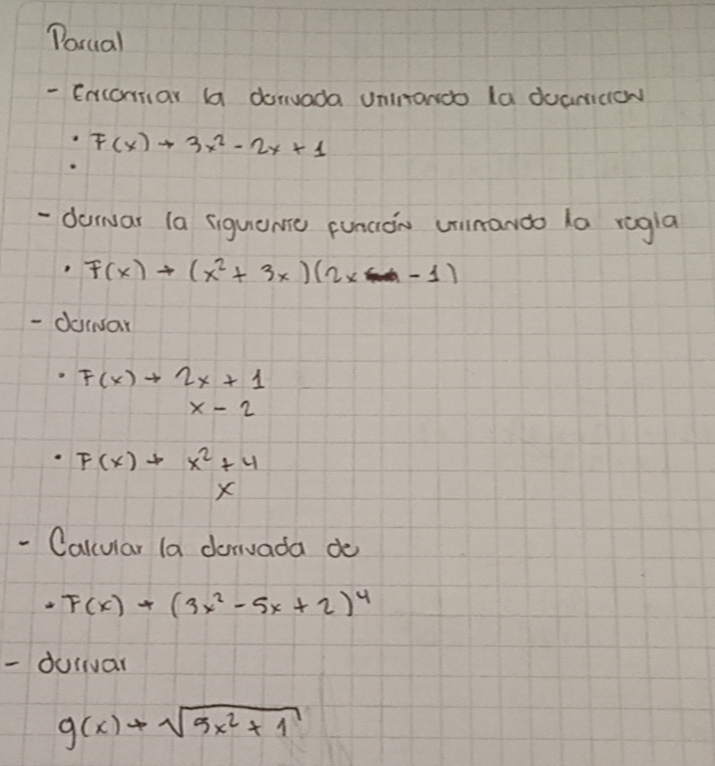 Parcial
- Encontrar la derivada utilizando la definición
• F(x) → 3x² - 2x + 1
•
- derivar la siguiente función utilizando la regla
• F(x) → (x² + 3x)(2x - 1)
- derivar
• F(x) → 2x + 1
x - 2
• F(x) → x² + 4
x
- Calcular la derivada de
• F(x) → (3x² - 5x + 2)⁴
- derivar
g(x) → √5x² + 1